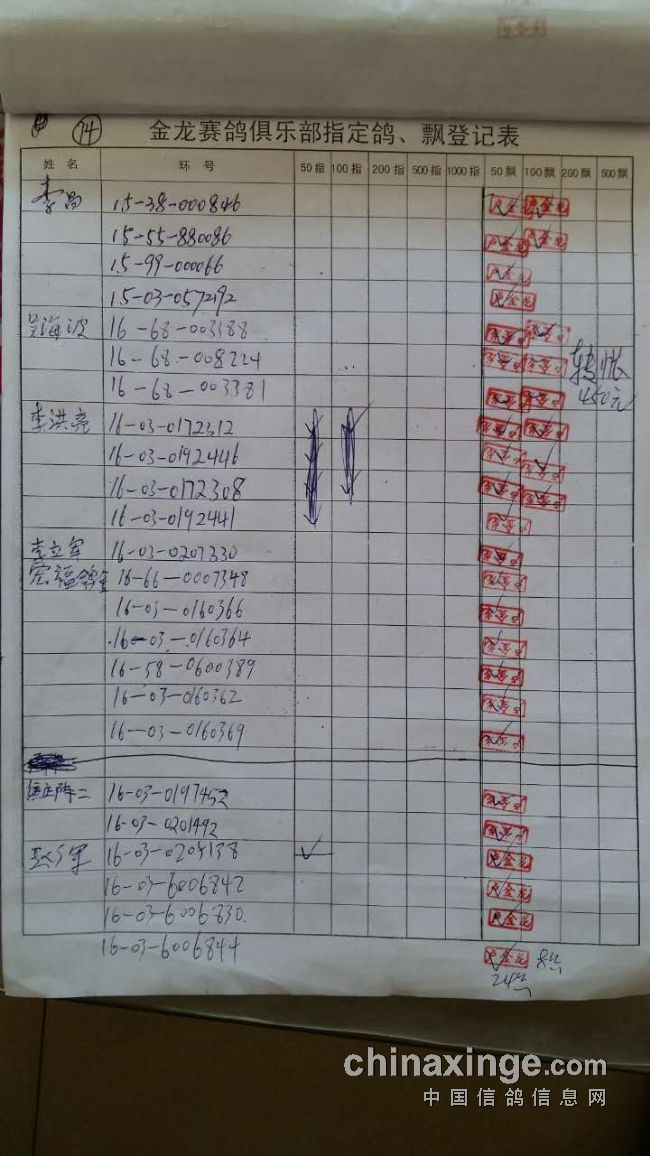 74
金龙赛鸽俱乐部指定鸽、飘登记表
姓名 环号 50指 100指 200指 500指 1000指 50飘 100飘 200飘 500飘
李昌 15-38-000846
15-55-880086
15-99-000066
15-03-057292
吴海波 16-68-003388
16-68-008224 转账
16-68-003381 450元
李洪亮 16-03-0172312
16-03-0192446
16-03-0172308
16-03-0192441
李立军 16-03-0207330
宏福鸽舍 16-66-0007348
16-03-0160366
16-03-0160364
16-58-0600389
16-03-0160362
16-03-0160369
16-03-0197452
16-03-0201492
16-03-0204138 ✓
16-03-6006842
16-03-6006830
16-03-6006844
chinaxinge.com
中国信鸽信息网